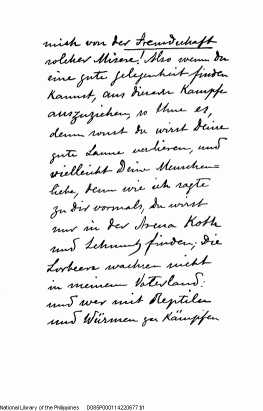 mich von der Freundschaft
solcher Misere! Also wenn du
eine gute gelegenheit finden
kannst, aus diesem Kampfe
auszuziehen, so thue es,
denn sonst du wirst Deine
gute Laune verlieren, und
vielleicht Deine Menschen-
liebe, denn wie ich sagte
zu Dir vormals, Du wirst
nur in der Arena Koth
und Schmutz finden; die
Lorbeere wachsen nicht
in meinem Vaterland:
und wer mit Reptilen
und Würmen zu Kämpfen
National Library of the Philippines